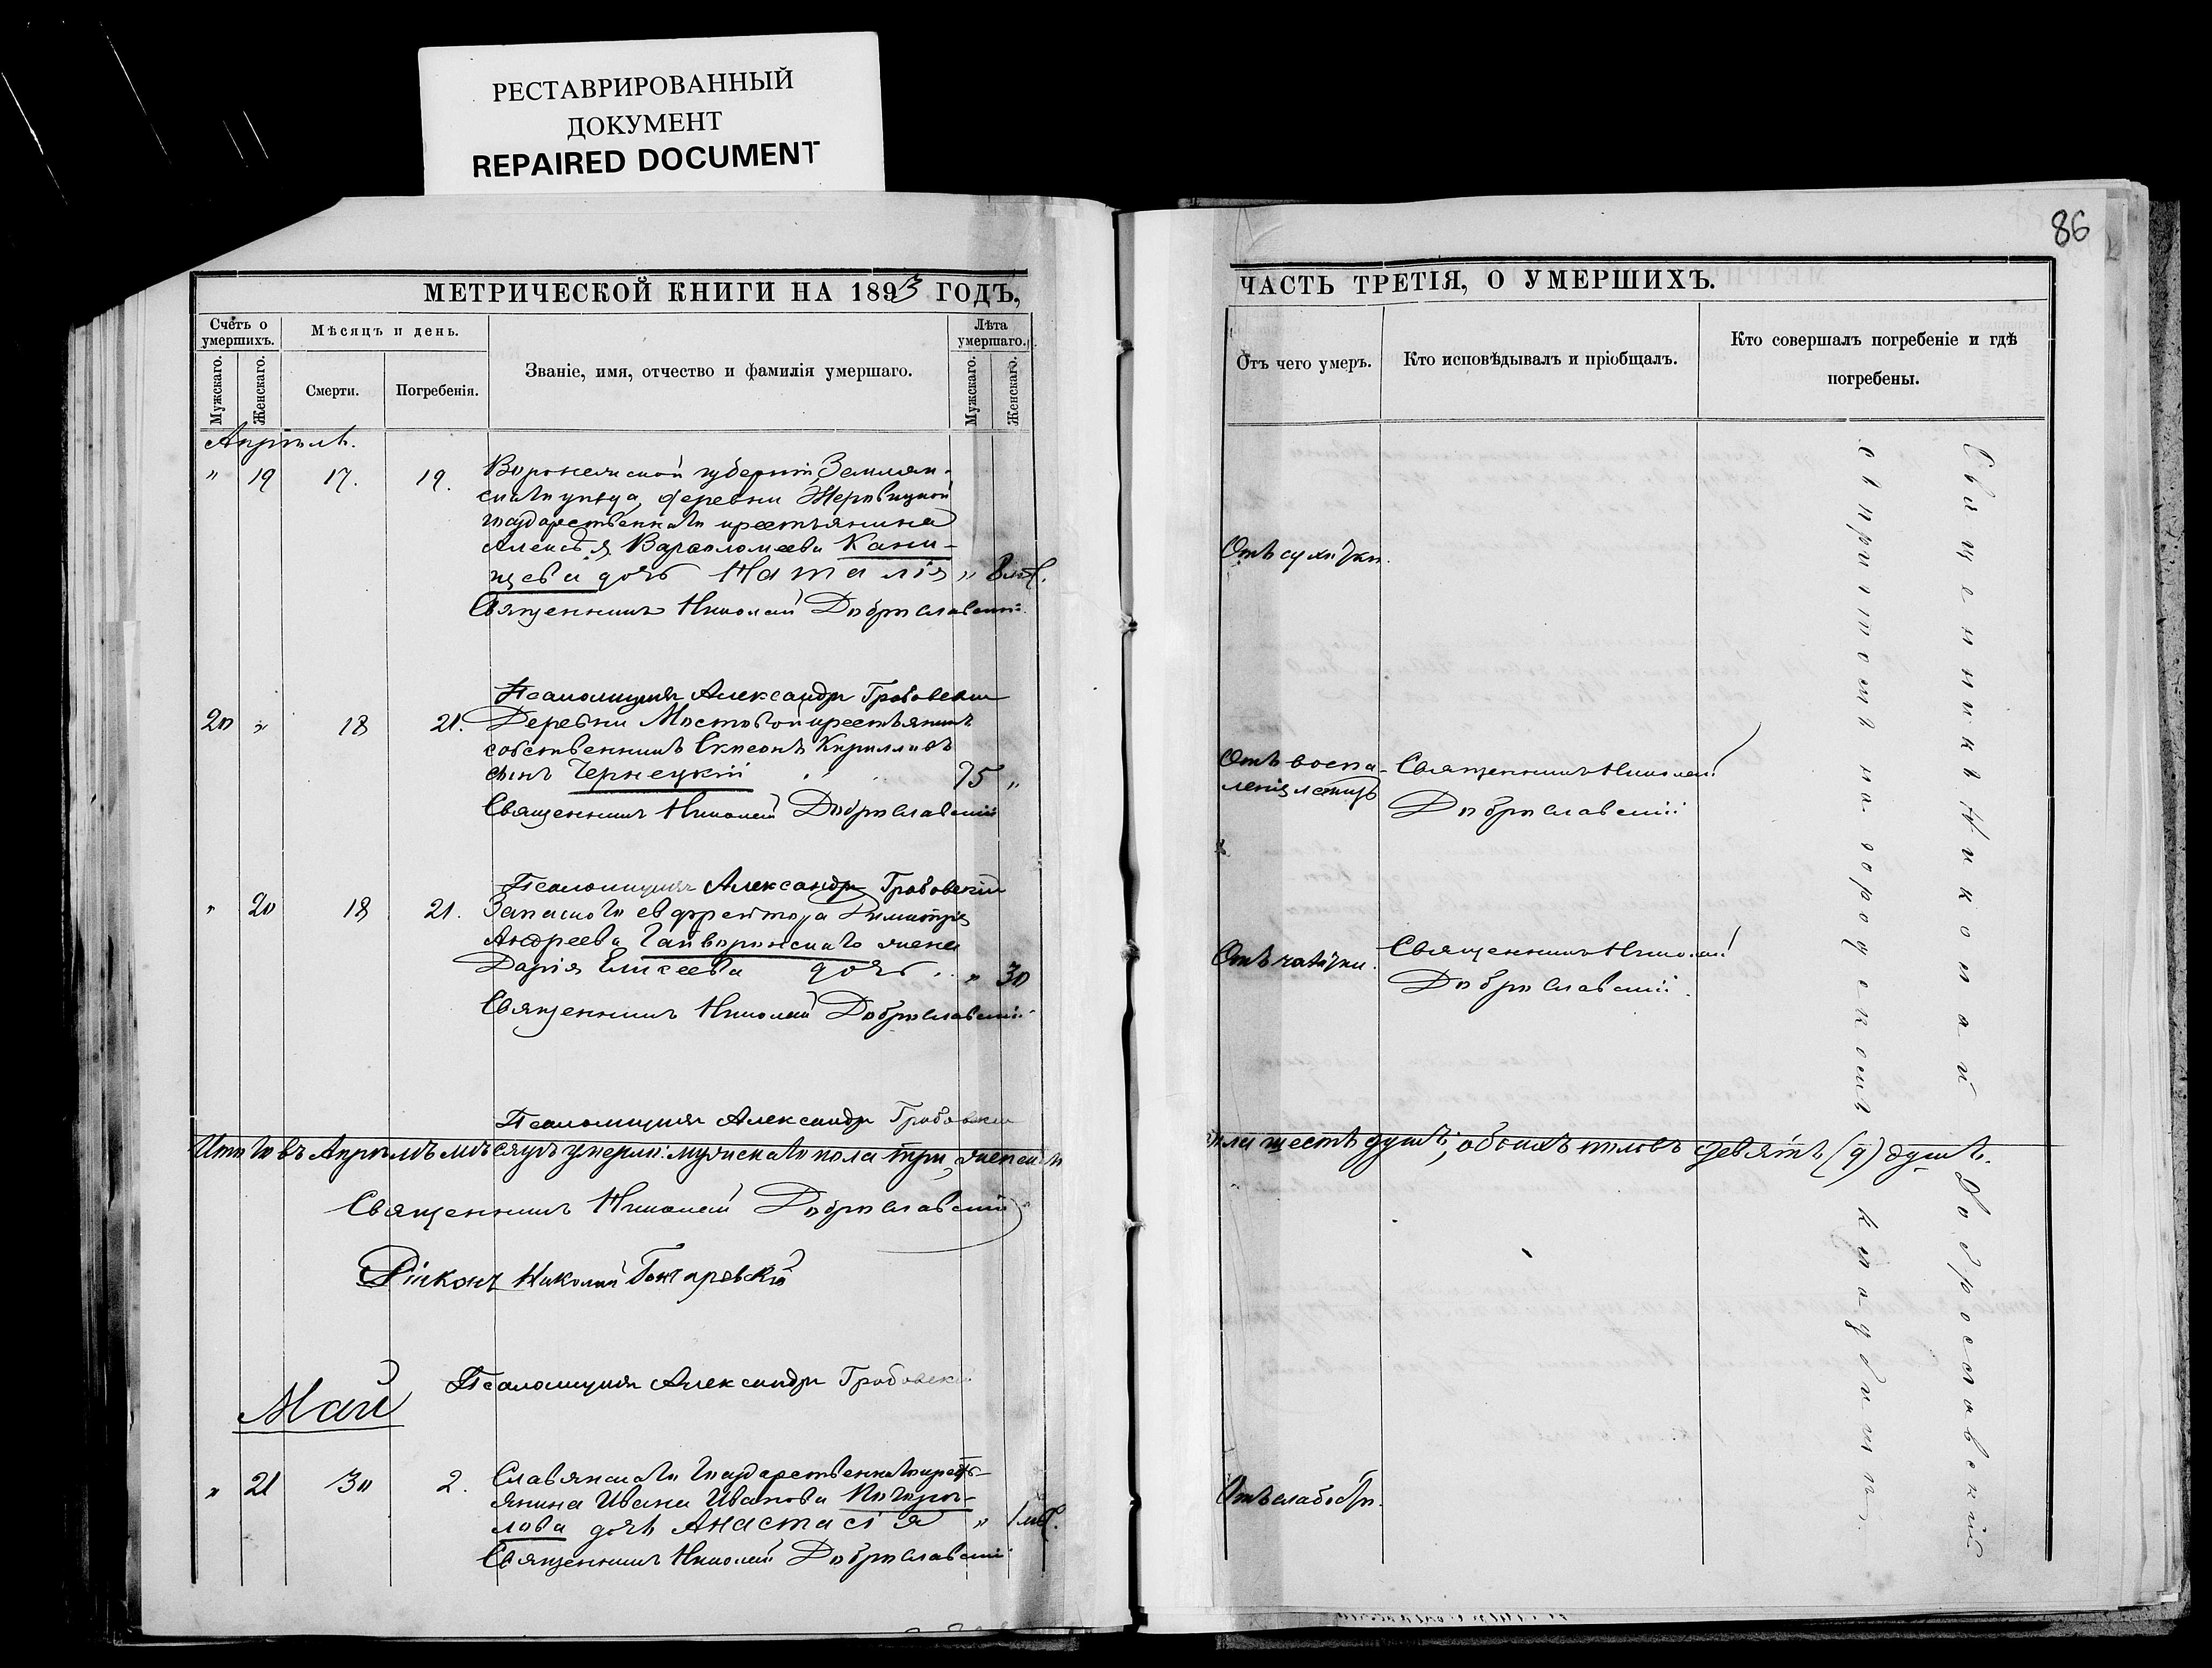 РЕСТАВРИРОВАННЫЙ
ДОКУМЕНТ
REPAIRED DOCUMENT
86
МЕТРИЧЕСКОЙ КНИГИ НА 1893 ГОДЪ,
ЧАСТЬ ТРЕТІЯ, О УМЕРШИХЪ.
Счетъ о умершихъ.
Мужскаго.
Женскаго.
Мѣсяцъ и день.
Смерти.
Погребенія.
Званіе, имя, отчество и фамилія умершаго.
Лѣта умершаго.
Мужскаго.
Женскаго.
Отъ чего умеръ.
Кто исповѣдывалъ и пріобщалъ.
Кто совершалъ погребеніе и гдѣ
погребены.
Апрѣль.
" 19 17. 19. Воронежской губерніи, Землян-
скаго уѣзда, деревни
государственнаго крестьянина
Алексѣя Варѳоломеева Кани-
щева дочь Наталія " 8
Отъ сухотки.
Священникъ Николай Доброславскій
Псаломщикъ Александръ Грабовскій
20 " 18 21. Деревни Мостовой крестьянинъ
собственникъ Симеонъ Кирилловъ
сынъ Чернецкій 75 "
Отъ воспа-
ленія легкихъ
Священникъ Николай
Доброславскій
Священникъ Николай Доброславскій
Псаломщикъ Александръ Грабовскій
" 20 18 21. Запаснаго ефрейтора Димитрія
Андреева Гайворонскаго жена
Дарія Елисеева дочь " 30
Отъ чахотки.
Священникъ Николай
Доброславскій
Священникъ Николай Доброславскій
Псаломщикъ Александръ Грабовскій
Итого въ Апрѣлѣ мѣсяцѣ умерло: мужскаго пола три, женскаго
пола шесть душъ; обоихъ половъ девять (9) душъ.
Священникъ Николай Доброславскій
Діаконъ Николай Гончаревскій
Псаломщикъ Александръ Грабовскій
Май
" 21 30 2. Славянскаго государственнаго крестъ-
янина Ивана Иванова
лова дочь Анастасія " 1
Отъ слабости.
Священникъ Николай Доброславскій
Священникъ Николай Доброславскій
съ причтомъ на городскомъ кладбищѣ.